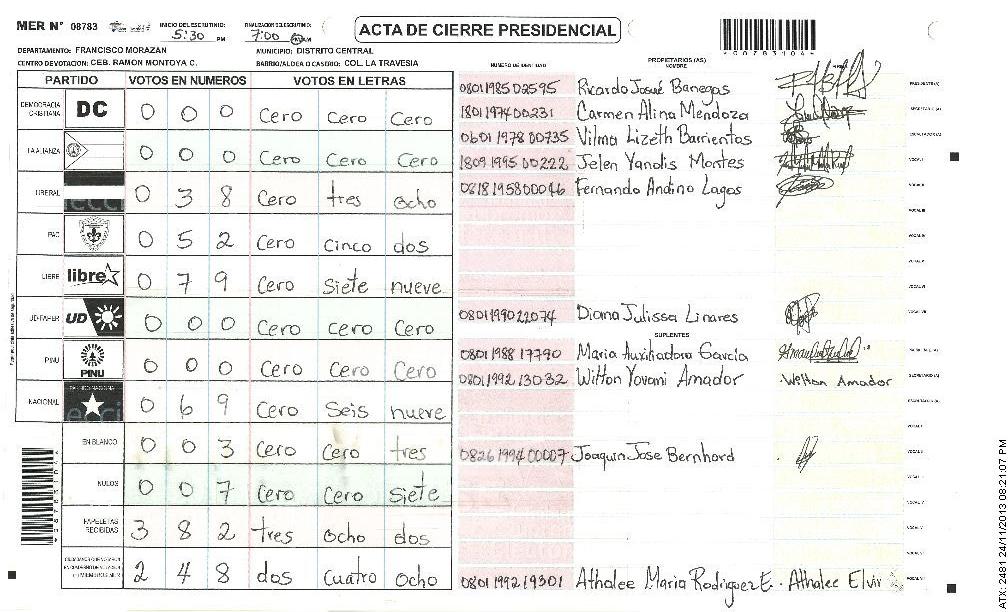 MER Nº 08783
INICIO DEL ESCRUTINIO: 5:30 PM
FINALIZACION DEL ESCRUTINIO: 7:00 AM
ACTA DE CIERRE PRESIDENCIAL
DEPARTAMENTO: FRANCISCO MORAZAN
MUNICIPIO: DISTRITO CENTRAL
CENTRO DE VOTACION: CEB. RAMON MONTOYA C.
BARRIO/ALDEA O CASERIO: COL. LA TRAVESIA
PARTIDO VOTOS EN NUMEROS VOTOS EN LETRAS
DEMOCRACIA CRISTIANA DC 0 0 0 Cero Cero Cero
LA ALIANZA 0 0 0 Cero Cero Cero
LIBERAL 0 3 8 Cero tres ocho
PAC 0 5 2 Cero Cinco dos
LIBRE libre 0 7 9 Cero Siete nueve
UD-FAPER UD 0 0 0 Cero Cero Cero
PINU PINU 0 0 0 Cero Cero Cero
NACIONAL 0 6 9 Cero Seis nueve
EN BLANCO 0 0 3 Cero Cero tres
NULOS 0 0 7 Cero Cero Siete
PAPELETAS RECIBIDAS 3 8 2 tres Ocho dos
2 4 8 dos Cuatro Ocho
NUMERO DE IDENTIDAD
PROPIETARIOS (AS)
NOMBRE
0801198502595 Ricardo Josué Banegas
1801197400231 Carmen Alina Mendoza
0601197800735 Vilma Lizeth Barrientos
1809199500222 Jelen Yanolis Montes
0818195800046 Fernando Andino Lagos
0801199022074 Diana Julissa Linares
SUPLENTES
0801198817790 Maria Auxiliadora García
0801199213032 Wilton Yovani Amador Welton Amador
0826199400007 Joaquin Jose Bernhard
0801199219301 Athalee Maria Rodriguez E. Athalee Elvir
ATX: 2481 24/11/2013 08:21:07 PM